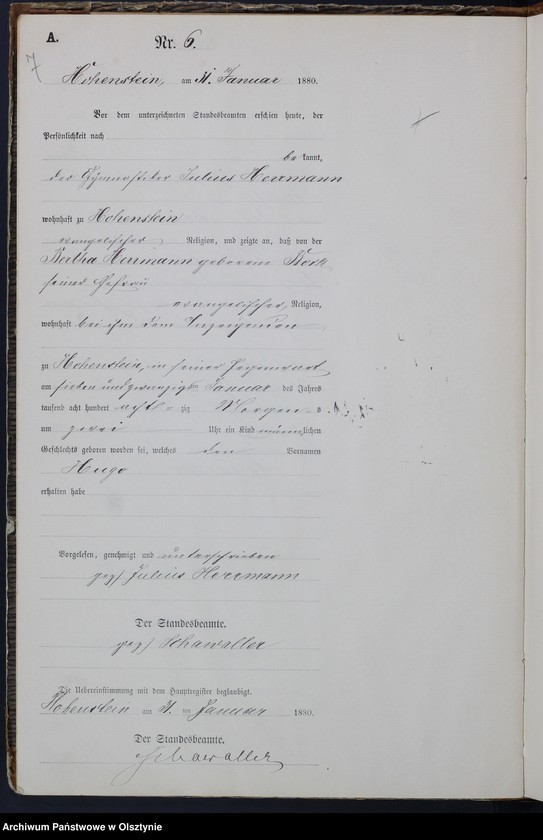 A.
Nr. 6.
7
Hohenstein, am 31. Januar 1880.
Vor dem unterzeichneten Standesbeamten erschien heute, der
Persönlichkeit nach
be kannt,
der Julius Herrmann
wohnhaft zu Hohenstein
evangelischer Religion, und zeigte an, daß von der
Bertha Herrmann geborene
seiner Ehefrau
evangelischer Religion,
wohnhaft bei ihm dem Anzeigenden
zu Hohenstein, in seiner Gegenwart
am sieben und zwanzigsten Januar des Jahres
tausend acht hundert acht-zig Morgens
um zwei Uhr ein Kind männlichen
Geschlechts geboren worden sei, welches den Vornamen
Hugo
erhalten habe
Vorgelesen, genehmigt und unterschrieben
gez) Julius Herrmann
Der Standesbeamte.
gez) Schawaller
Die Uebereinstimmung mit dem Hauptregister beglaubigt.
Hohenstein am 31. ten Januar 1880.
Der Standesbeamte.
Schawaller
Archiwum Państwowe w Olsztynie